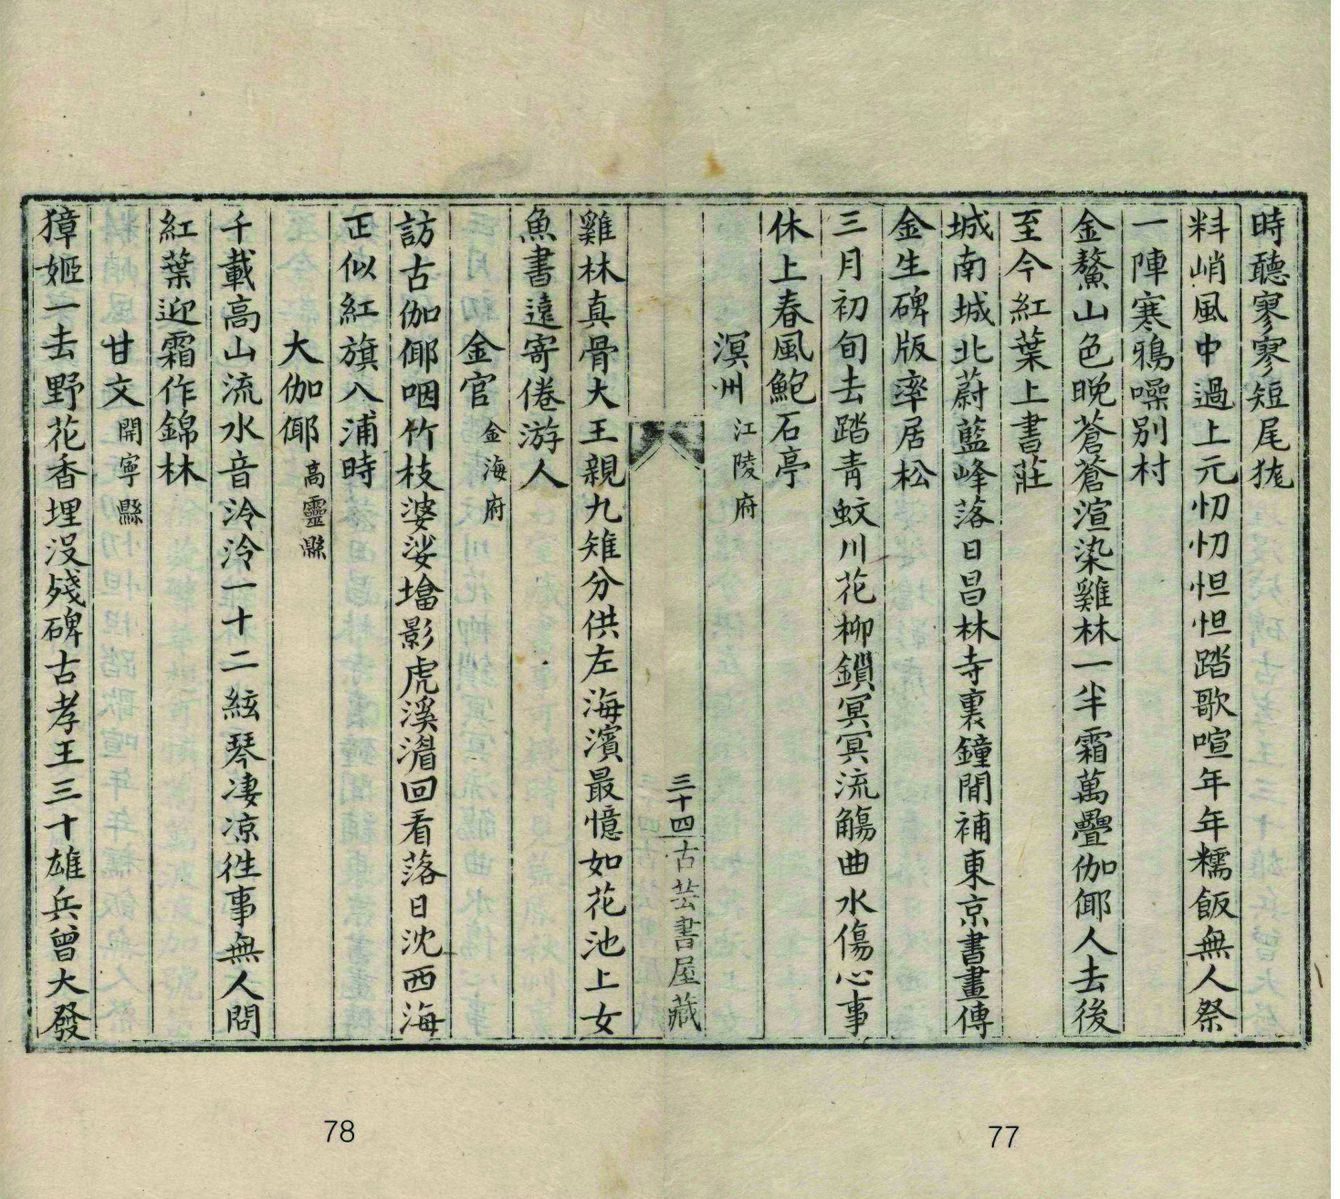 時聽寥寥短尾狵
料峭風中過上元忉忉怛怛踏歌喧年年糯飯無人祭
一陣寒鴉噪別村
金鰲山色晩蒼蒼渲染雞林一半霜萬疊伽倻人去後
至今紅葉上書莊
城南城北蔚藍峰落日昌林寺裏鐘閒補東京書畫傳
金生碑版率居松
三月初旬去踏青蚊川花柳鎖冥冥流觴曲水傷心事
休上春風鮑石亭
溟州 江陵府
三十四 古芸書屋藏
雞林真骨大王親九雉分供左海濱最憶如花池上女
魚書遠寄倦游人
金官 金海府
訪古伽倻咽竹枝婆娑㙮影虎溪湄回看落日沈西海
正似紅旗入浦時
大伽倻 高靈縣
千載高山流水音泠泠一十二絃琴凄凉徃事無人問
紅葉迎霜作錦林
甘文 開寧縣
獐姬一去野花香埋沒殘碑古孝王三十雄兵曾大發
78
77